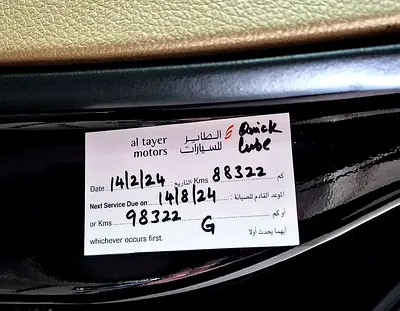 al tayer الطاير Quick
motors للسيارات Lube
Date : 14/2/24 التاريخ : Kms 88322 كم
Next Service Due on: 14/8/24 الموعد القادم للصيانة :
or Kms 98322 أو كم
G
whichever occurs first. أيهما يحدث أولا